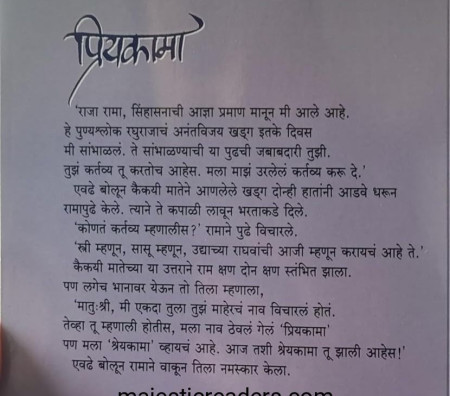 प्रियकामा
'राजा रामा, सिंहासनाची आज्ञा प्रमाण मानून मी आले आहे.
हे पुण्यश्लोक रघुराजाचं अनंतविजय खड्ग इतके दिवस
मी सांभाळलं. ते सांभाळण्याची या पुढची जबाबदारी तुझी.
तुझं कर्तव्य तू करतोच आहेस. मला माझं उरलेलं कर्तव्य करू दे.'
एवढे बोलून कैकयी मातेने आणलेले खड्ग दोन्ही हातांनी आडवे धरून
रामापुढे केले. त्याने ते कपाळी लावून भरताकडे दिले.
'कोणतं कर्तव्य म्हणालीस?' रामाने पुढे विचारले.
'स्त्री म्हणून, सासू म्हणून, उद्याच्या राघवांची आजी म्हणून करायचं आहे ते.'
कैकयी मातेच्या या उत्तराने राम क्षण दोन क्षण स्तंभित झाला.
पण लगेच भानावर येऊन तो तिला म्हणाला,
'मातुःश्री, मी एकदा तुला तुझं माहेरचं नाव विचारलं होतं.
तेव्हा तू म्हणाली होतीस, मला नाव ठेवलं गेलं 'प्रियकामा'
पण मला 'श्रेयकामा' व्हायचं आहे. आज तशी श्रेयकामा तू झाली आहेस!'
एवढे बोलून रामाने वाकून तिला नमस्कार केला.
majesticreaders.com